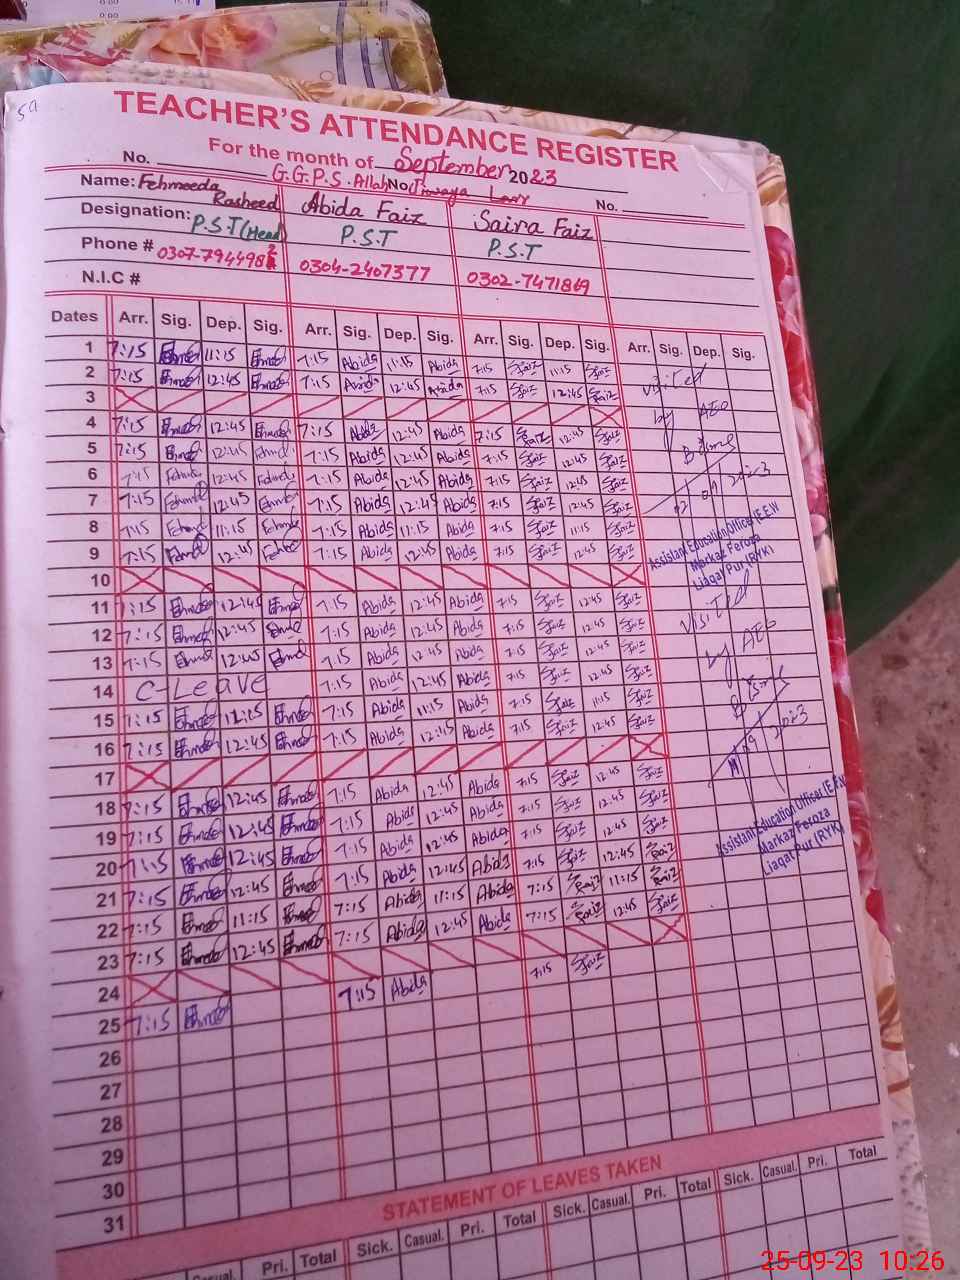 TEACHER'S ATTENDANCE REGISTER
For the month of September 2023
No. G.G.P.S. Allah No. No.
Name: Fehmeeda Rasheed Abida Faiz Saira Faiz
Designation: P.S.T (Head) P.S.T P.S.T
Phone # 0304-2407377
N.I.C #
Dates Arr. Sig. Dep. Sig. Arr. Sig. Dep. Sig. Arr. Sig. Dep. Sig. Arr. Sig. Dep. Sig.
1 7:15 11:15 7:15 Abida 11:15 Abida 7:15 Faiz 11:15 Faiz
2 7:15 12:45 7:15 Abida 12:45 Abida 7:15 Faiz 12:45 Faiz
3
4 7:15 12:45 7:15 Abida 12:45 Abida 7:15 Faiz 12:45 Faiz
5 7:15 12:45 7:15 Abida 12:45 Abida 7:15 Faiz 12:45 Faiz
6 7:15 12:45 7:15 Abida 12:45 Abida 7:15 Faiz 12:45 Faiz
7 7:15 12:45 7:15 Abida 12:45 Abida 7:15 Faiz 12:45 Faiz
8 7:15 11:15 7:15 Abida 11:15 Abida 7:15 Faiz 11:15 Faiz
9 7:15 12:45 7:15 Abida 12:45 Abida 7:15 Faiz 12:45 Faiz
10
11 7:15 12:45 7:15 Abida 12:45 Abida 7:15 Faiz 12:45 Faiz
12 7:15 12:45 7:15 Abida 12:45 Abida 7:15 Faiz 12:45 Faiz
13 7:15 12:45 7:15 Abida 12:45 Abida 7:15 Faiz 12:45 Faiz
14 C-Leave 7:15 Abida 12:45 Abida 7:15 Faiz 12:45 Faiz
15 7:15 7:15 Abida 11:15 Abida 7:15 Faiz 11:15 Faiz
16 7:15 12:45 7:15 Abida 12:45 Abida 7:15 Faiz 12:45 Faiz
17
18 7:15 12:45 7:15 Abida 12:45 Abida 7:15 Faiz 12:45 Faiz
19 7:15 12:45 7:15 Abida 12:45 Abida 7:15 Faiz 12:45 Faiz
20 7:15 12:45 7:15 Abida 12:45 Abida 7:15 Faiz 12:45 Faiz
21 7:15 12:45 7:15 Abida 12:45 Abida 7:15 Faiz 12:45 Faiz
22 7:15 11:15 7:15 Abida 11:15 Abida 7:15 Faiz 11:15 Faiz
23 7:15 12:45 7:15 Abida 12:45 Abida 7:15 Faiz 12:45 Faiz
24
25 7:15 7:15 Abida 7:15 Faiz
26
27
28
29
30
31
Visited
by AEO
Assistant Education Officer (E.E.W
Markaz Feroza
Liaqat Pur (RYK)
Visited
by AEO
Assistant Education Officer (E.E.W
Markaz Feroza
Liaqat Pur (RYK)
STATEMENT OF LEAVES TAKEN
Casual. Pri. Total Sick. Casual. Pri. Total Sick. Casual. Pri. Total Sick. Casual. Pri. Total
25-09-23 10:26